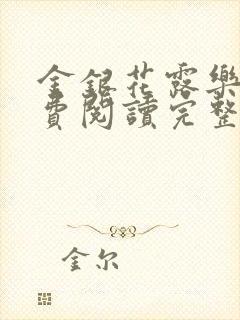 金銀花露樂
費閱讀完整
金尔